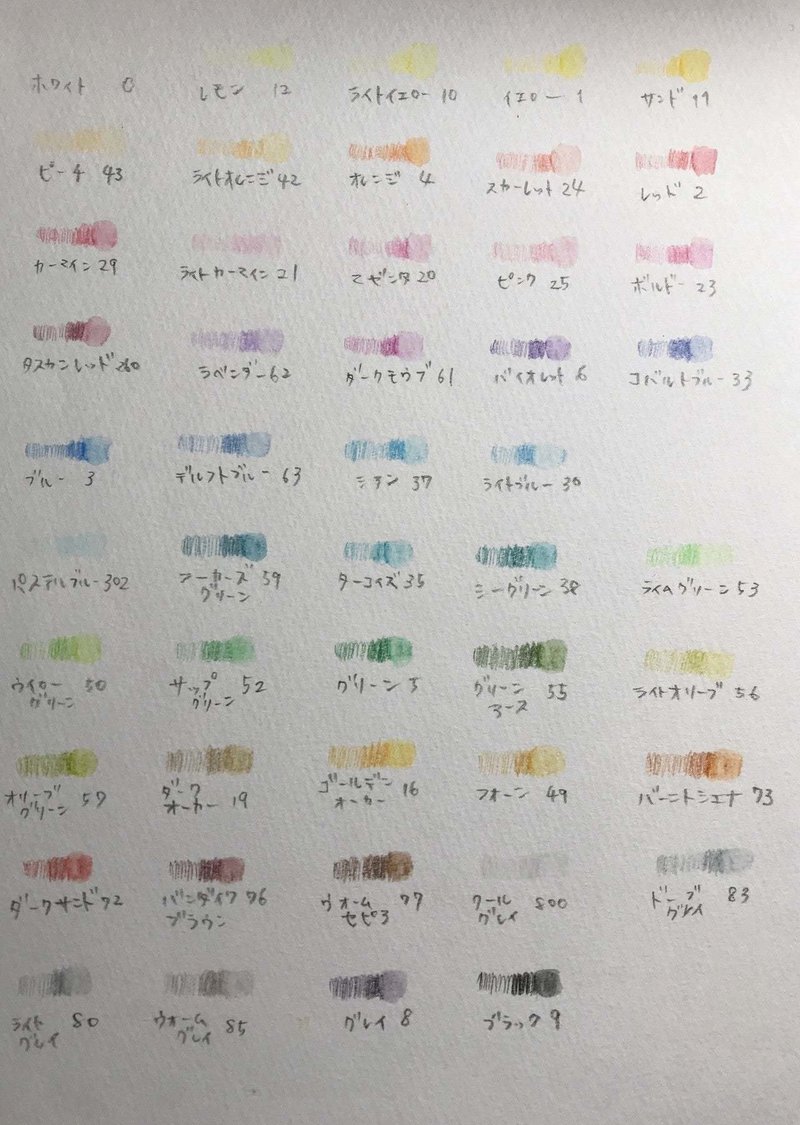 ホワイト 0 レモン 12 ライトイエロー 10 イエロー 1 サンド 11
ピーチ 43 ライトオレンジ 42 オレンジ 4 スカーレット 24 レッド 2
カーマイン 29 ライトカーマイン 21 マゼンタ 20 ピンク 25 ボルドー 23
タスカンレッド 260 ラベンダー 62 ダークモウブ 61 バイオレット 6 コバルトブルー 33
ブルー 3 デルフトブルー 63 シアン 37 ライトブルー 30
パステルブルー 302 アーカーズ 39 ターコイズ 35 シーグリーン 38 ライムグリーン 53
グリーン
ウイロー 50 サップ 52 グリーン 5 グリーン 55 ライトオリーブ 56
グリーン グリーン アース
オリーブ 57 ダーク 19 ゴールデン 16 フォーン 49 バーントシェナ 73
グリーン オーカー オーカー
ダークサンド 72 バンダイク 76 ウォーム 77 クール 800 ドーブ 83
ブラウン セピア グレイ グレイ
ライト 80 ウォーム 85 グレイ 8 ブラック 9
グレイ グレイ